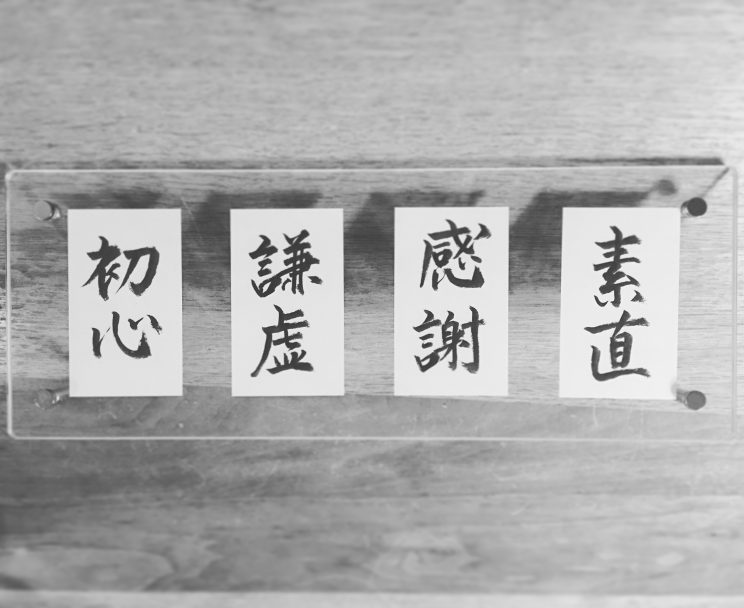 素直
感謝
謙虚
初心